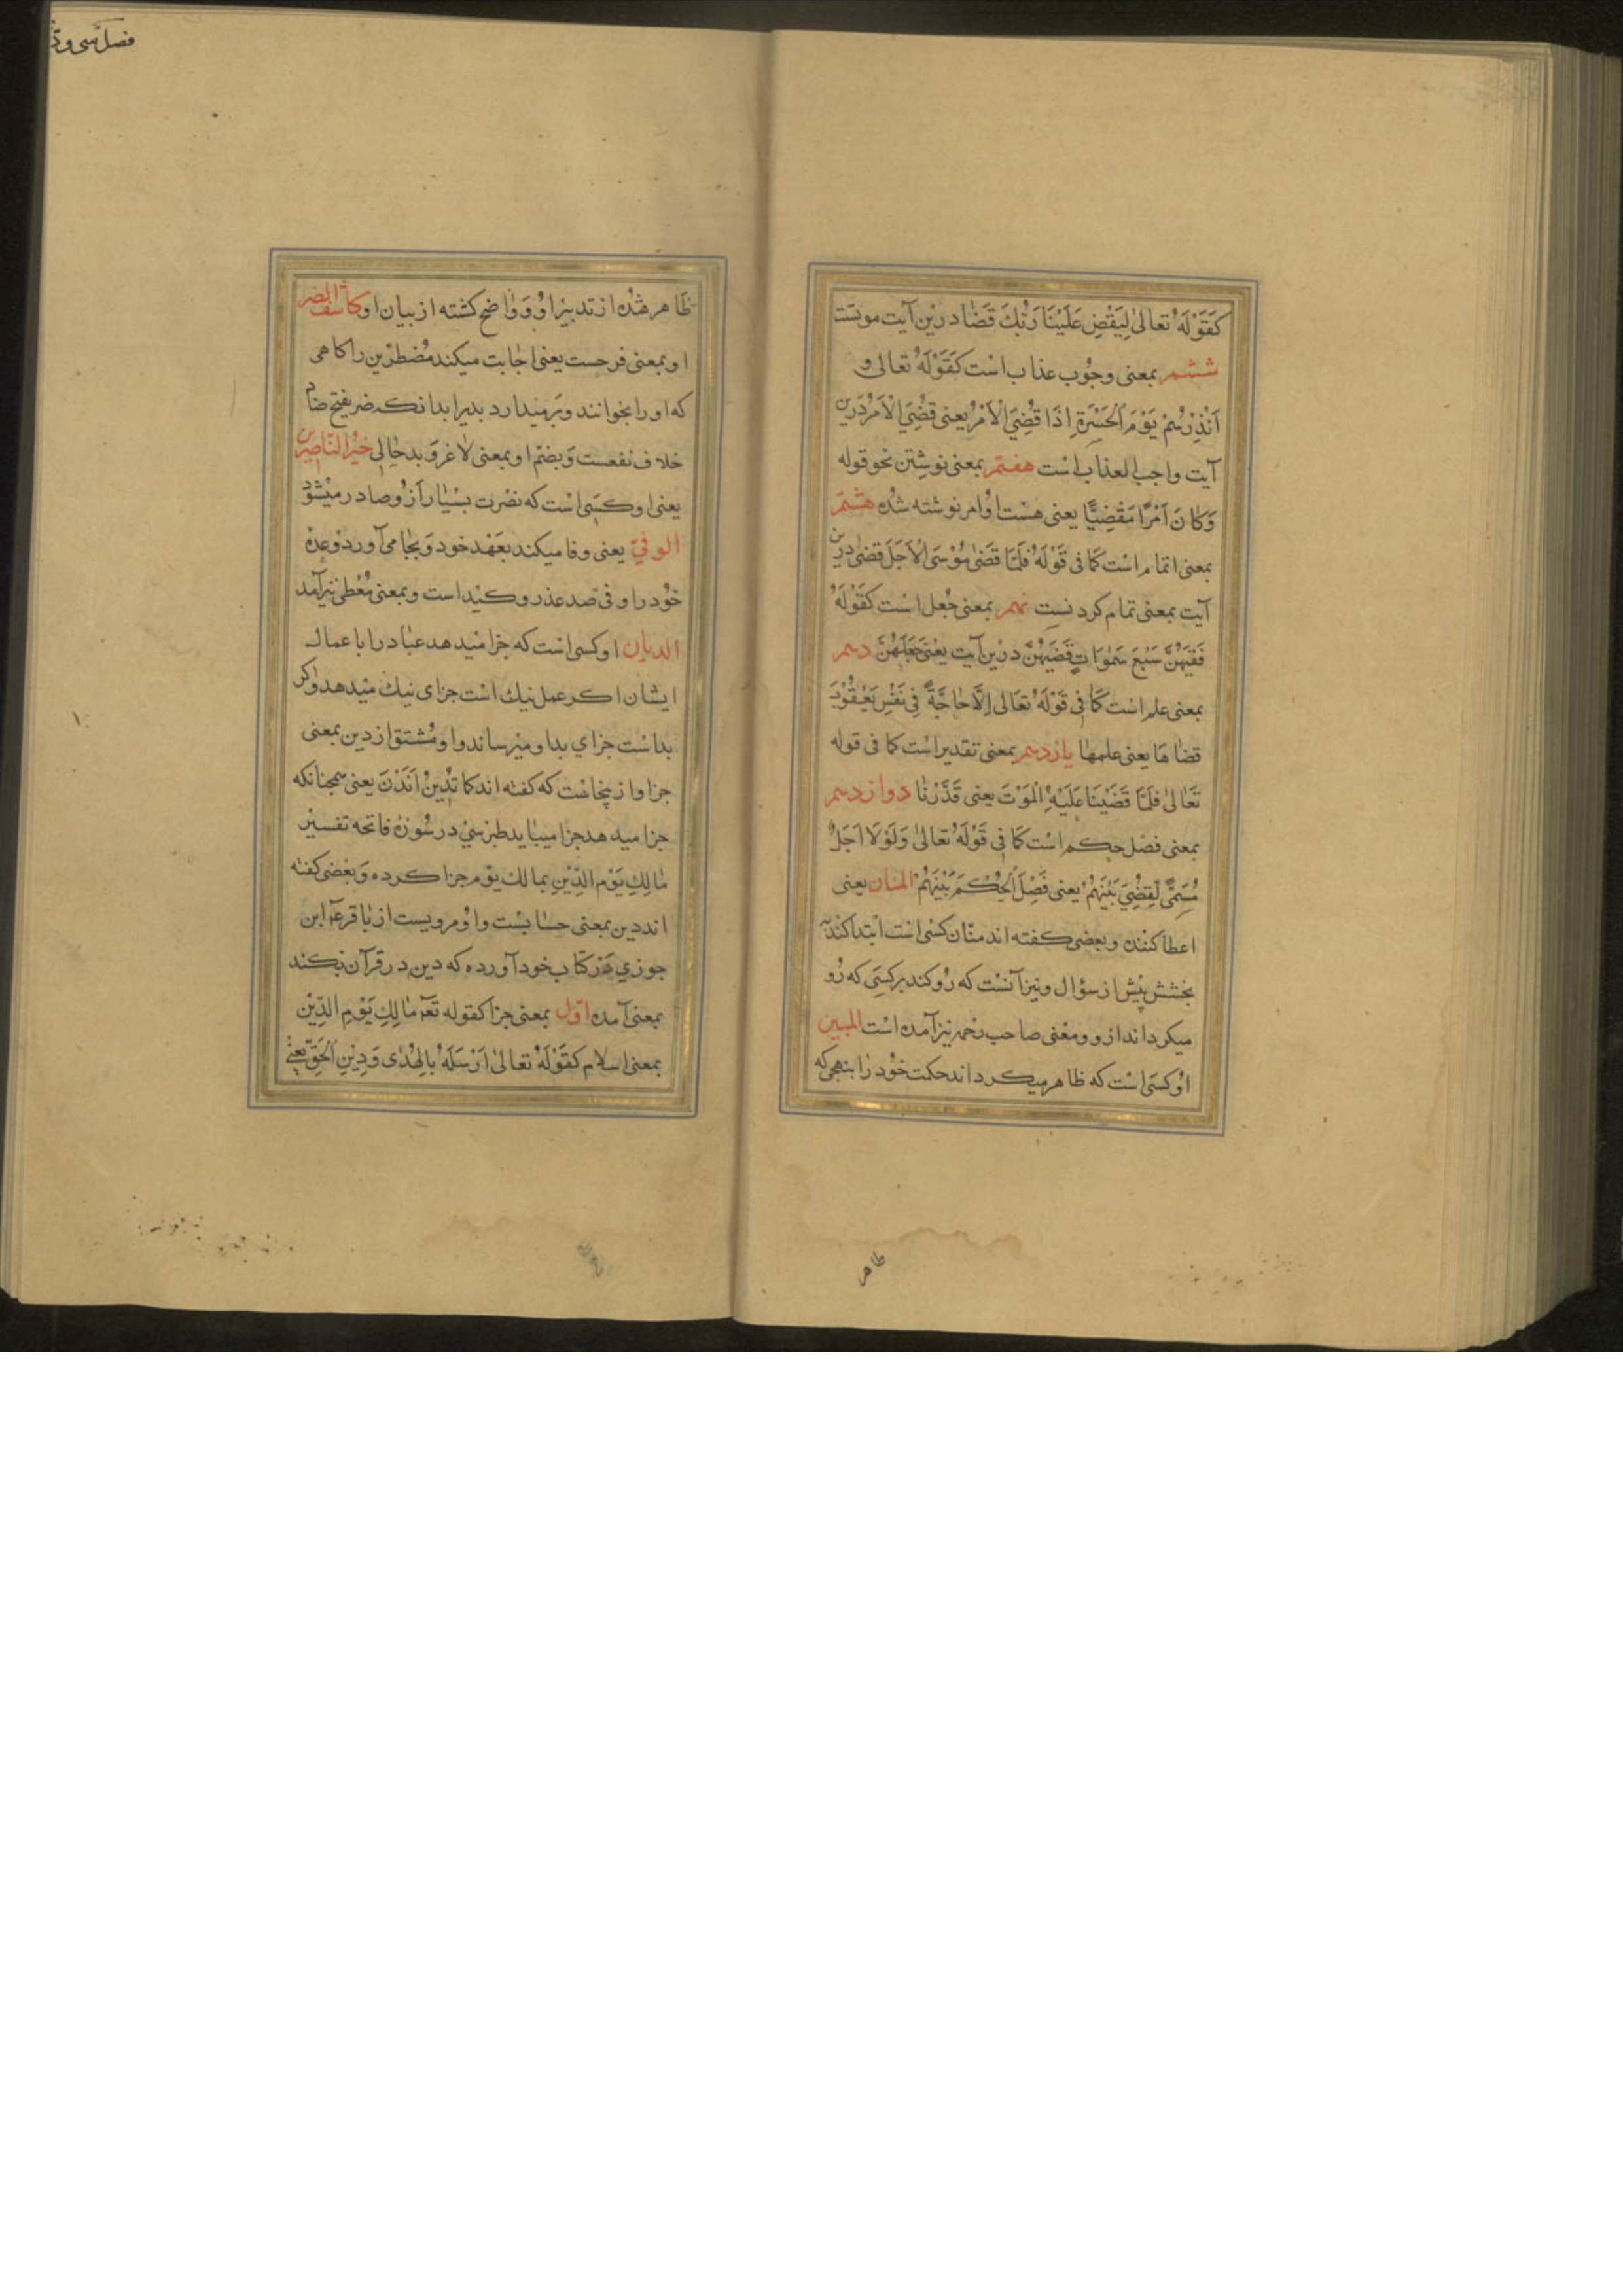 كَقَوْلِهِ تعالىٰ لِيَقْضِ عَلَيْنَا رَبُّكَ قَضٰا درین آیت موتست
ششم بمعنی وجوب عذاب است كَقَوْلِهِ تعالى و
اَنْذِرْهُمْ يَوْمَ الْحَسْرَةِ اِذْ قُضِيَ الْاَمْرُ یعنی قُضِيَ الْاَمْرُ درین
آیت واجب العذاب است هفتم بمعنی نوشتن نحو قوله
وَكٰانَ اَمْرًا مَقْضِيًّا یعنی هست او امر نوشته شده هشتم
بمعنی اتمام است كَمٰا فی قَوْلِهِ فَلَمَّا قَضٰى مُوْسَى الْاَجَلَ قضىٰ درین
آیت بمعنی تمام کردنست نهم بمعنی جُعل است كقَوْلِهِ
فَقَضٰيهُنَّ سَبْعَ سَمٰوَاتٍ قَضٰيهُنَّ درین آیت یعنی جَعَلَهُنَّ دهم
بمعنی علم است كَمٰا فِی قَوْلِهِ تعَالى اِلَّا حٰاجَةً فِي نَفْسِ يَعْقُوْبَ
قضٰاهَا یعنی علمها یازدهم بمعنی تقدیر است كما فی قوله
تَعٰالىٰ فَلَمَّا قَضَيْنَا عَلَيْهِ الْمَوْتَ یعنی قَدَّرْنٰا دوازدهم
بمعنی فصل حکم است كَمٰا فِی قَوْلِهِ تعالىٰ وَلَوْلَا اَجَلٌ
مُسَمًّى لَقُضِيَ بَيْنَهُمْ یعنی فَصْلَ الْحُكْمِ بَيْنَهُمْ المنان یعنی
اعطا کننده و بعضی کفته اند منّان کسی است ابتدا کننده
بخشش پیش از سؤال و نیز آنست که رُو کند بر کسی که رُو
میکرداند ازو و معنی صاحب رحم نیز آمده است المبین
او کسی است که ظاهر میکرداند حکمت خود را بنهجی که
طاهر
فصل سی و
ظاهر شده از تدبیر او و وٰاضح کشته از بیان او كاشف الضر
او بمعنی فرحست یعنی اجابت میکند مُضطرّین را کاهی
که او را بخوانند و برمیدارد بدیرا بدانکه ضر بفتح ضاد
خلاف نفعست و بضمّ او بمعنی لاغر و بدحٰالی خیر الناصرین
یعنی او کسی است که نصرت بسیار از و صادر میشود
الوفيّ یعنی وفا میکند بعَهْد خود و بجا می آورد وعده
خود را و فی ضد عذر و کید است و بمعنی مُعْطی نیز آمد
الدیان او کسی است که جزا میدهد عباد را با عمال
ایشان اکر عمل نیك است جزای نیك میدهد و اکر
بد است جزاي بد او میرساند و او مشتق از دین بمعنی
جزا و از ینجاست که کفته اند كما تدين اَندن یعنی همچنانکه
جزا میدهد جزا میبٰاید طبرسي در سوره فاتحه تفسیر
مٰالِكِ يَوْمِ الدِّيْنِ بمالك یوم جزا کرده و بعضی کفته
اند دین بمعنی حسابست و او مرویست از باقر عه ابن
جوزي در کتاب خود آورده که دین در قرآن بکند
بمعنی آمده اوّل بمعنی جزا كقوله تعه مٰالِكِ يَوْمِ الدِّيْنِ
بمعنی اسلام كقَوْلِهِ تعالىٰ اَرْسَلَهُ بِالْهُدٰى وَدِيْنِ الْحَقِّ یعنی